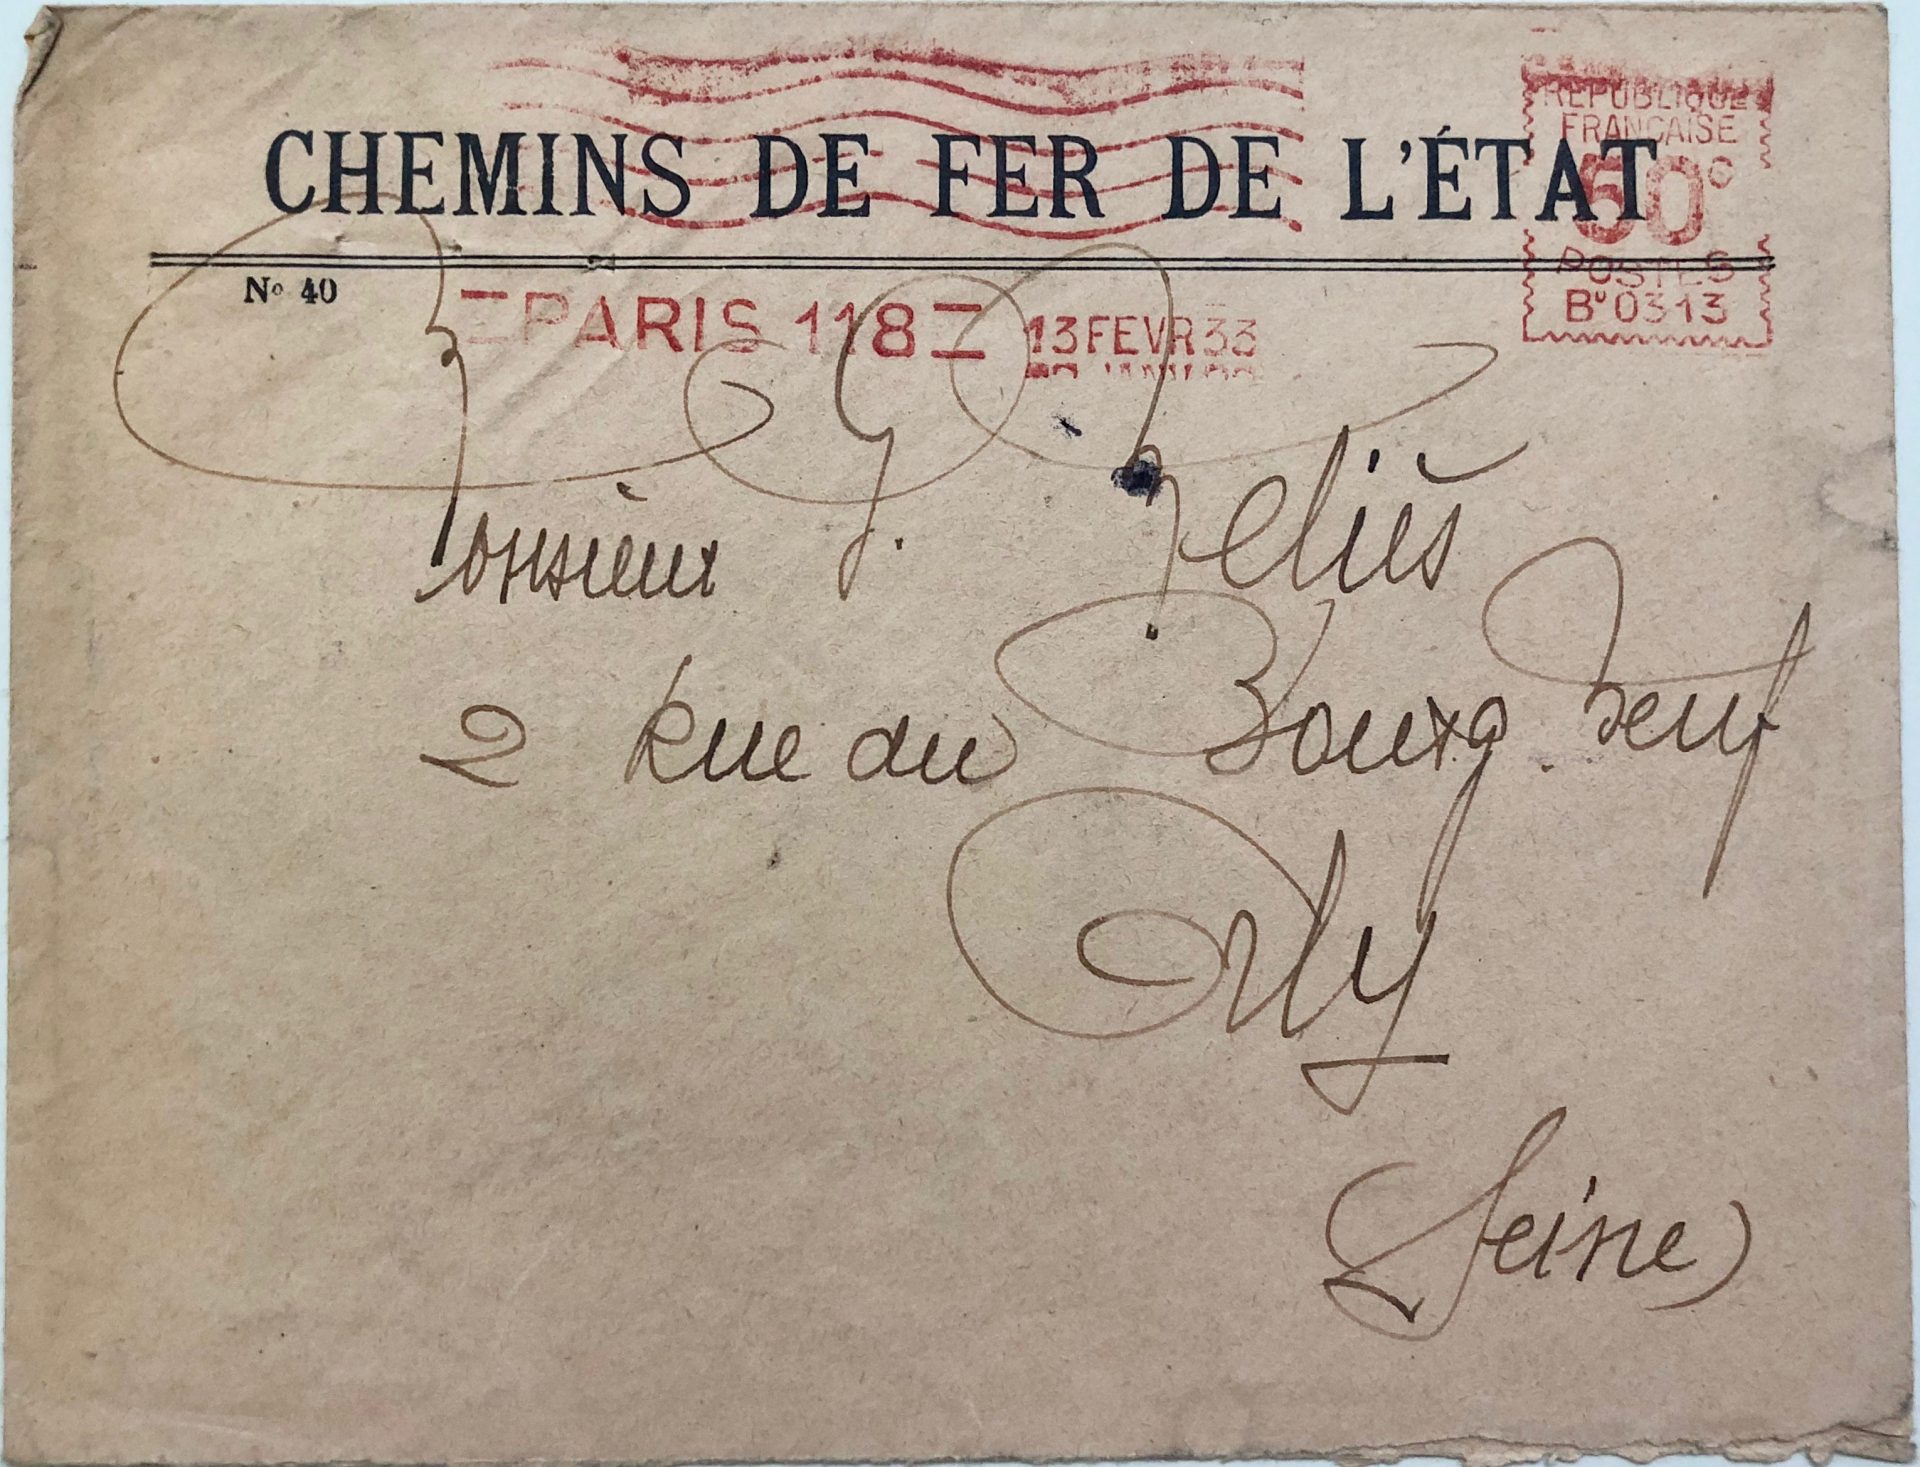 RÉPUBLIQUE
FRANÇAISE
CHEMINS DE FER DE L'ÉTAT
50c
POSTES
Nº 40
PARIS 118
13 FEVR 33
Bu 0313
Monsieur G. Meliès
2 Rue du Bourg. Neuf
Orly
(Seine)